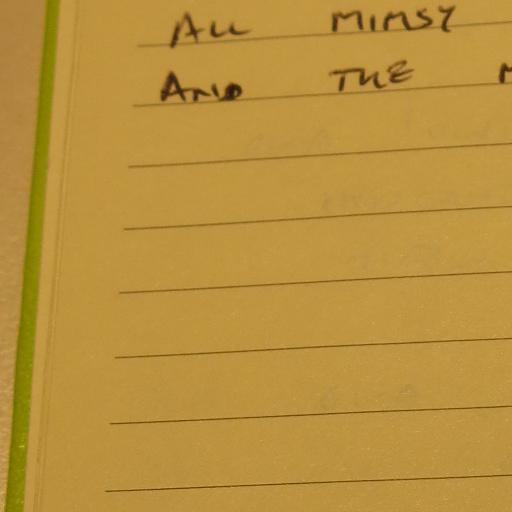 ALL MIMSY
AND THE